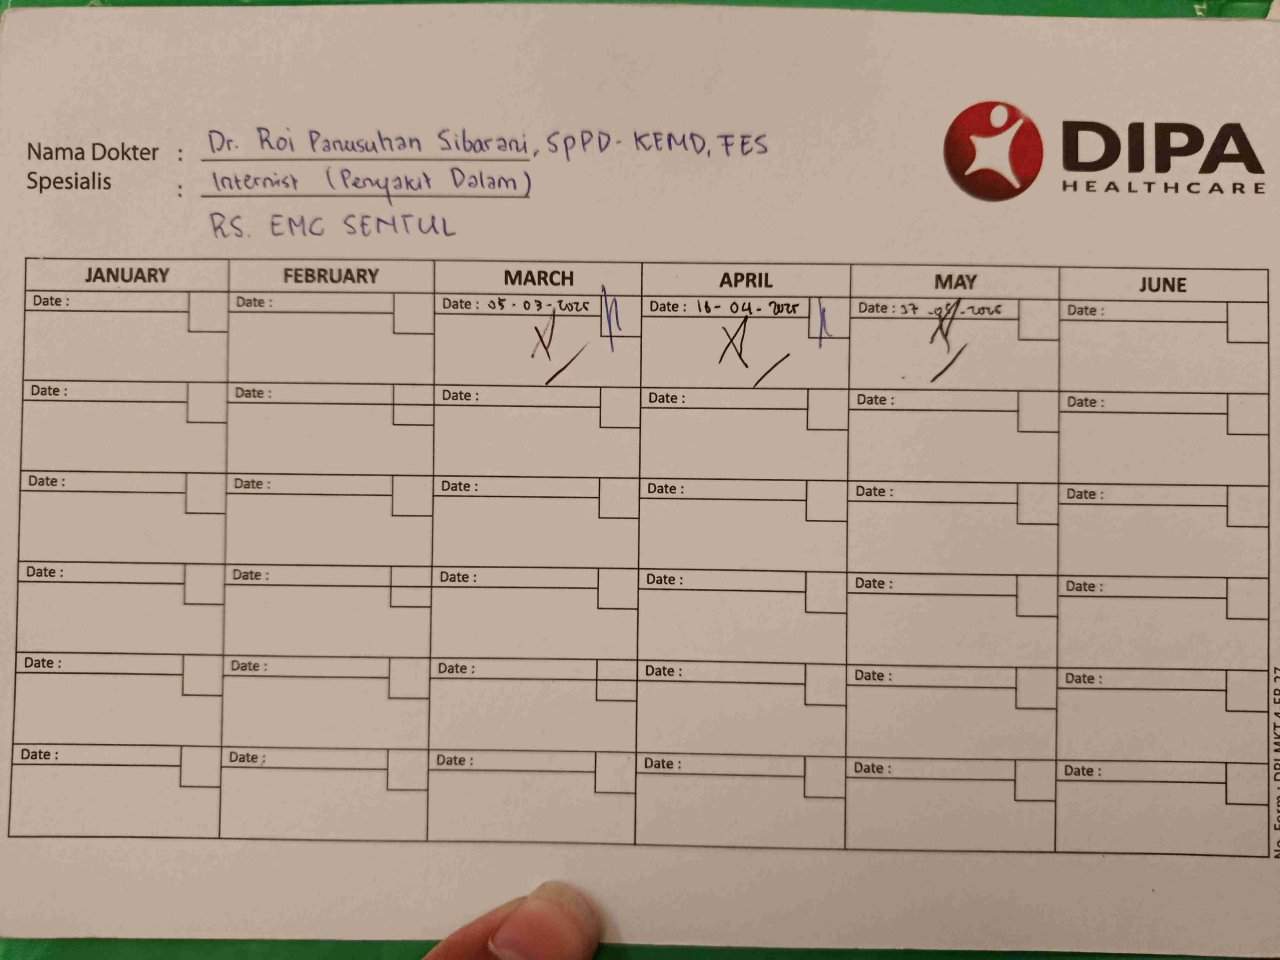 Nama Dokter : Dr. Roi Panusuhan Sibarani, SpPD-KEMD, FES
Spesialis : Internist (Penyakit Dalam)
RS. EMC SENTUL
DIPA
HEALTHCARE
JANUARY FEBRUARY MARCH APRIL MAY JUNE
Date : Date : Date : 05-03-2025 Date : 16-04-2025 Date : -2025 Date :
Date : Date : Date : Date : Date : Date :
Date : Date : Date : Date : Date : Date :
Date : Date : Date : Date : Date : Date :
Date : Date : Date : Date : Date : Date :
Date : Date : Date : Date : Date : Date :
No. Form :